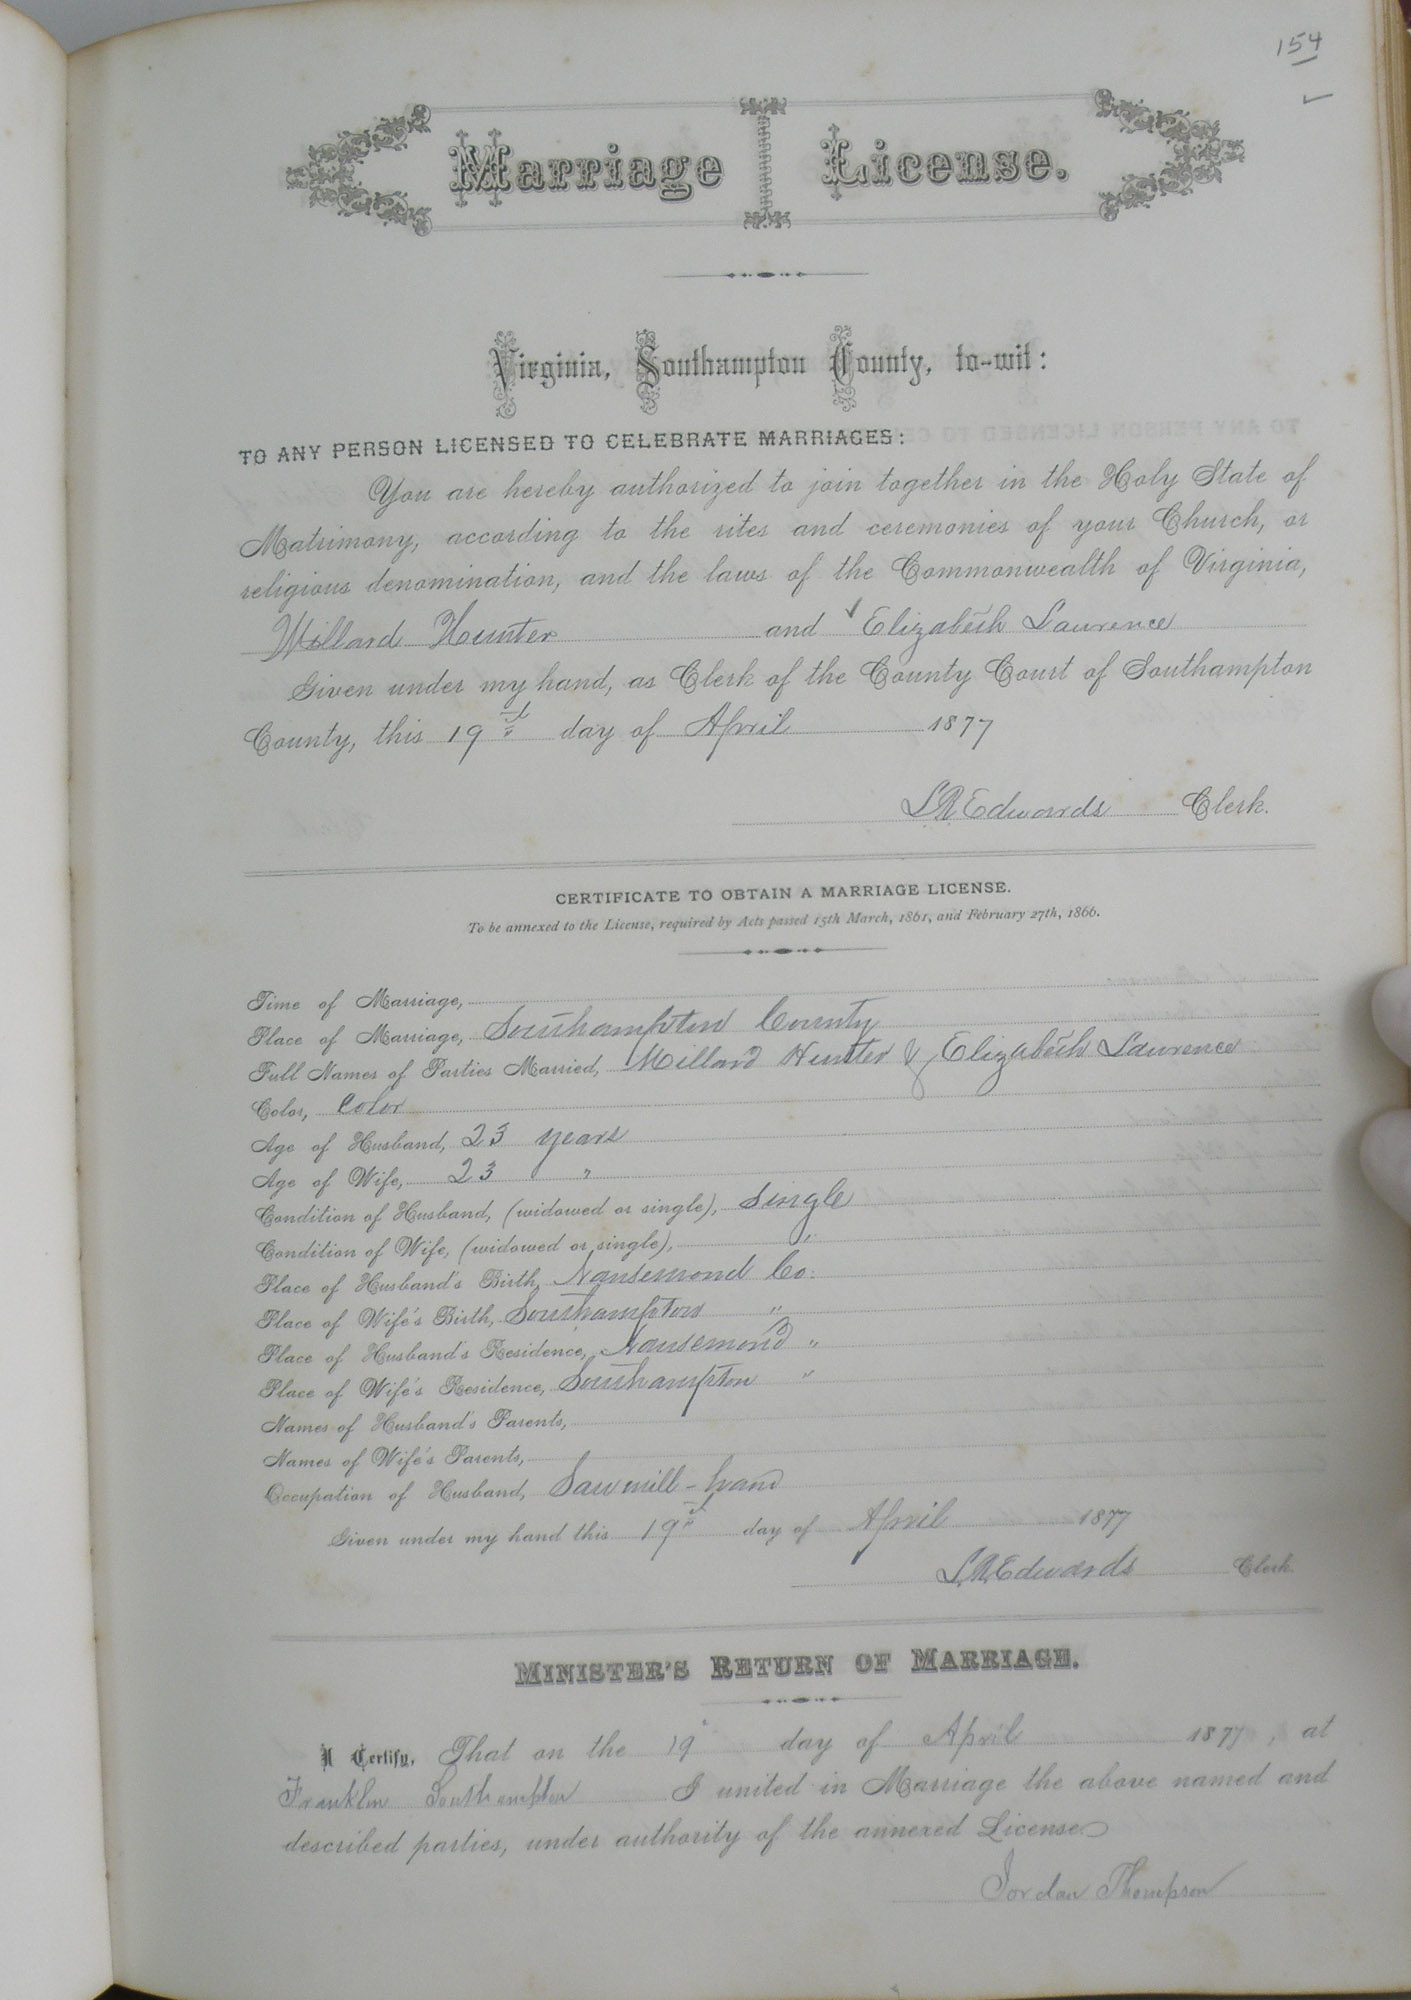 154
Marriage License.
Virginia, Southampton County, to-wit:
TO ANY PERSON LICENSED TO CELEBRATE MARRIAGES:
You are hereby authorized to join together in the Holy State of
Matrimony, according to the rites and ceremonies of your Church, or
religious denomination, and the laws of the Commonwealth of Virginia,
Millard Hunter and Elizabeth Lawrence
Given under my hand, as Clerk of the County Court of Southampton
County, this 19th day of April 1877
L R Edwards Clerk.
CERTIFICATE TO OBTAIN A MARRIAGE LICENSE.
To be annexed to the License, required by Acts passed 15th March, 1861, and February 27th, 1866.
Time of Marriage,
Place of Marriage, Southampton County
Full Names of Parties Married, Millard Hunter & Elizabeth Lawrence
Color, Color
Age of Husband, 23 years
Age of Wife, 23 "
Condition of Husband, (widowed or single), Single
Condition of Wife, (widowed or single), "
Place of Husband's Birth, Nansemond Co:
Place of Wife's Birth, Southampton "
Place of Husband's Residence, Nansemond "
Place of Wife's Residence, Southampton "
Names of Husband's Parents,
Names of Wife's Parents,
Occupation of Husband, Saw mill-hand
Given under my hand this 19th day of April 1877
L R Edwards Clerk.
MINISTER'S RETURN OF MARRIAGE.
I Certify, That on the 19 day of April 1877, at
Franklin Southampton I united in Marriage the above named and
described parties, under authority of the annexed License.
Jordan Thompson